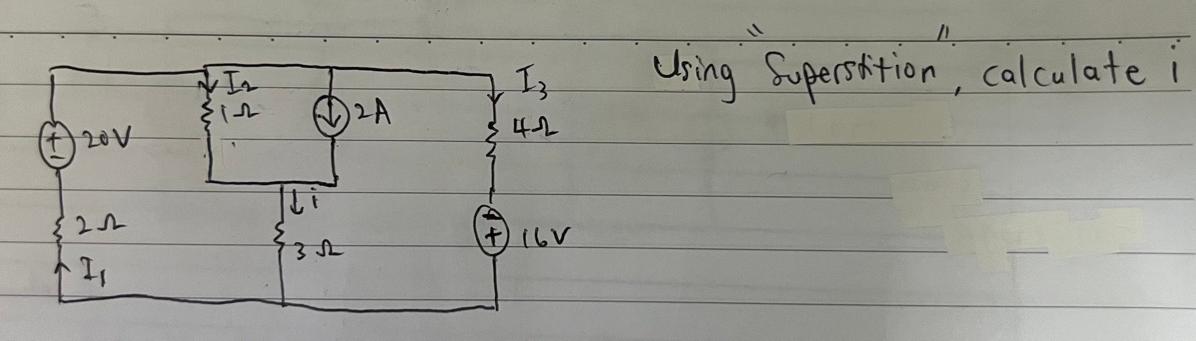 Using "Superstition", calculate i
I₂
1Ω
2A
I₃
4Ω
+
-
20V
i
2Ω
3Ω
-
+
16V
I₁